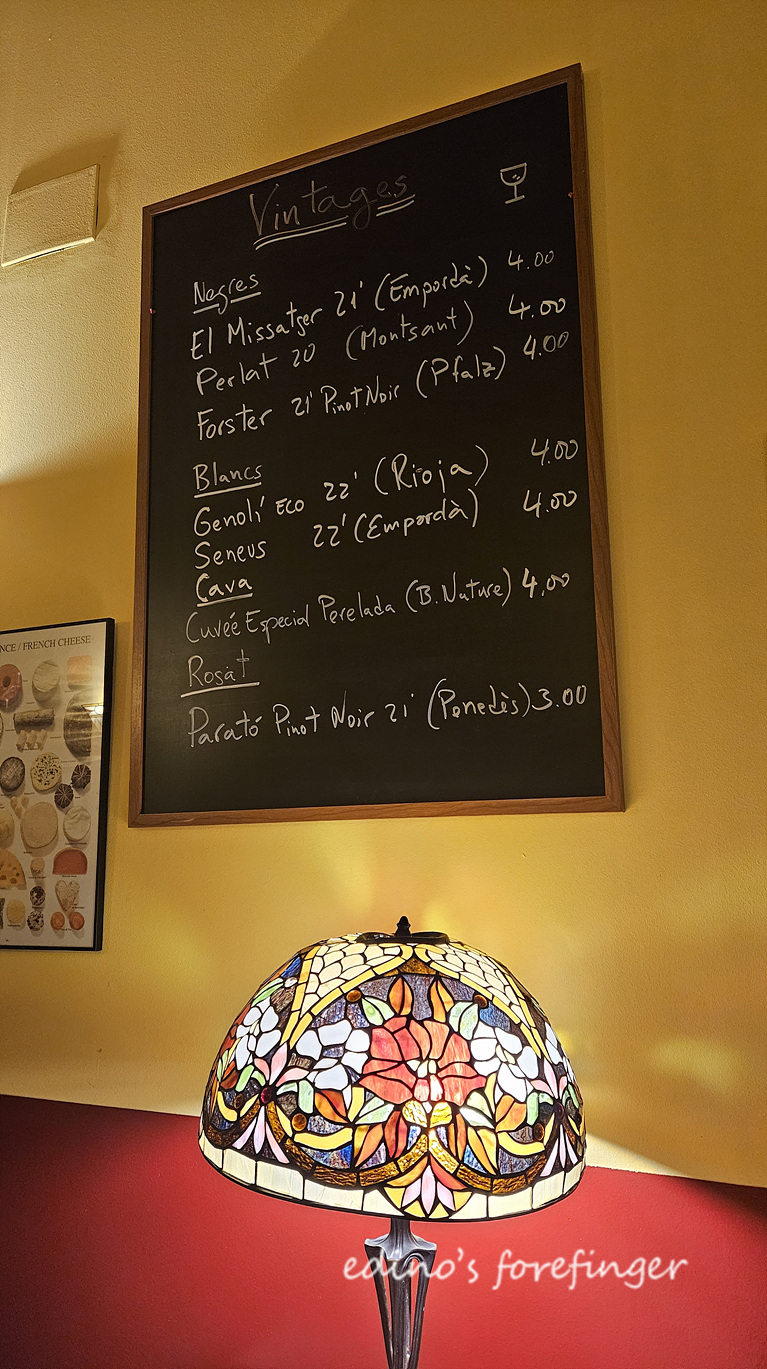 Vintages
Negres
El Missatger 21' (Empordà) 4.00
Perlat 20 (Montsant) 4.00
Forster 21' Pinot Noir (Pfalz) 4.00
Blancs
Genolí Eco 22' (Rioja) 4.00
Seneus 22' (Empordà) 4.00
Cava
Cuvéé Especial Perelada (B. Nature) 4,00
Rosat
Parató Pinot Noir 21' (Penedès) 3.00
NCE / FRENCH CHEESE
edino's forefinger